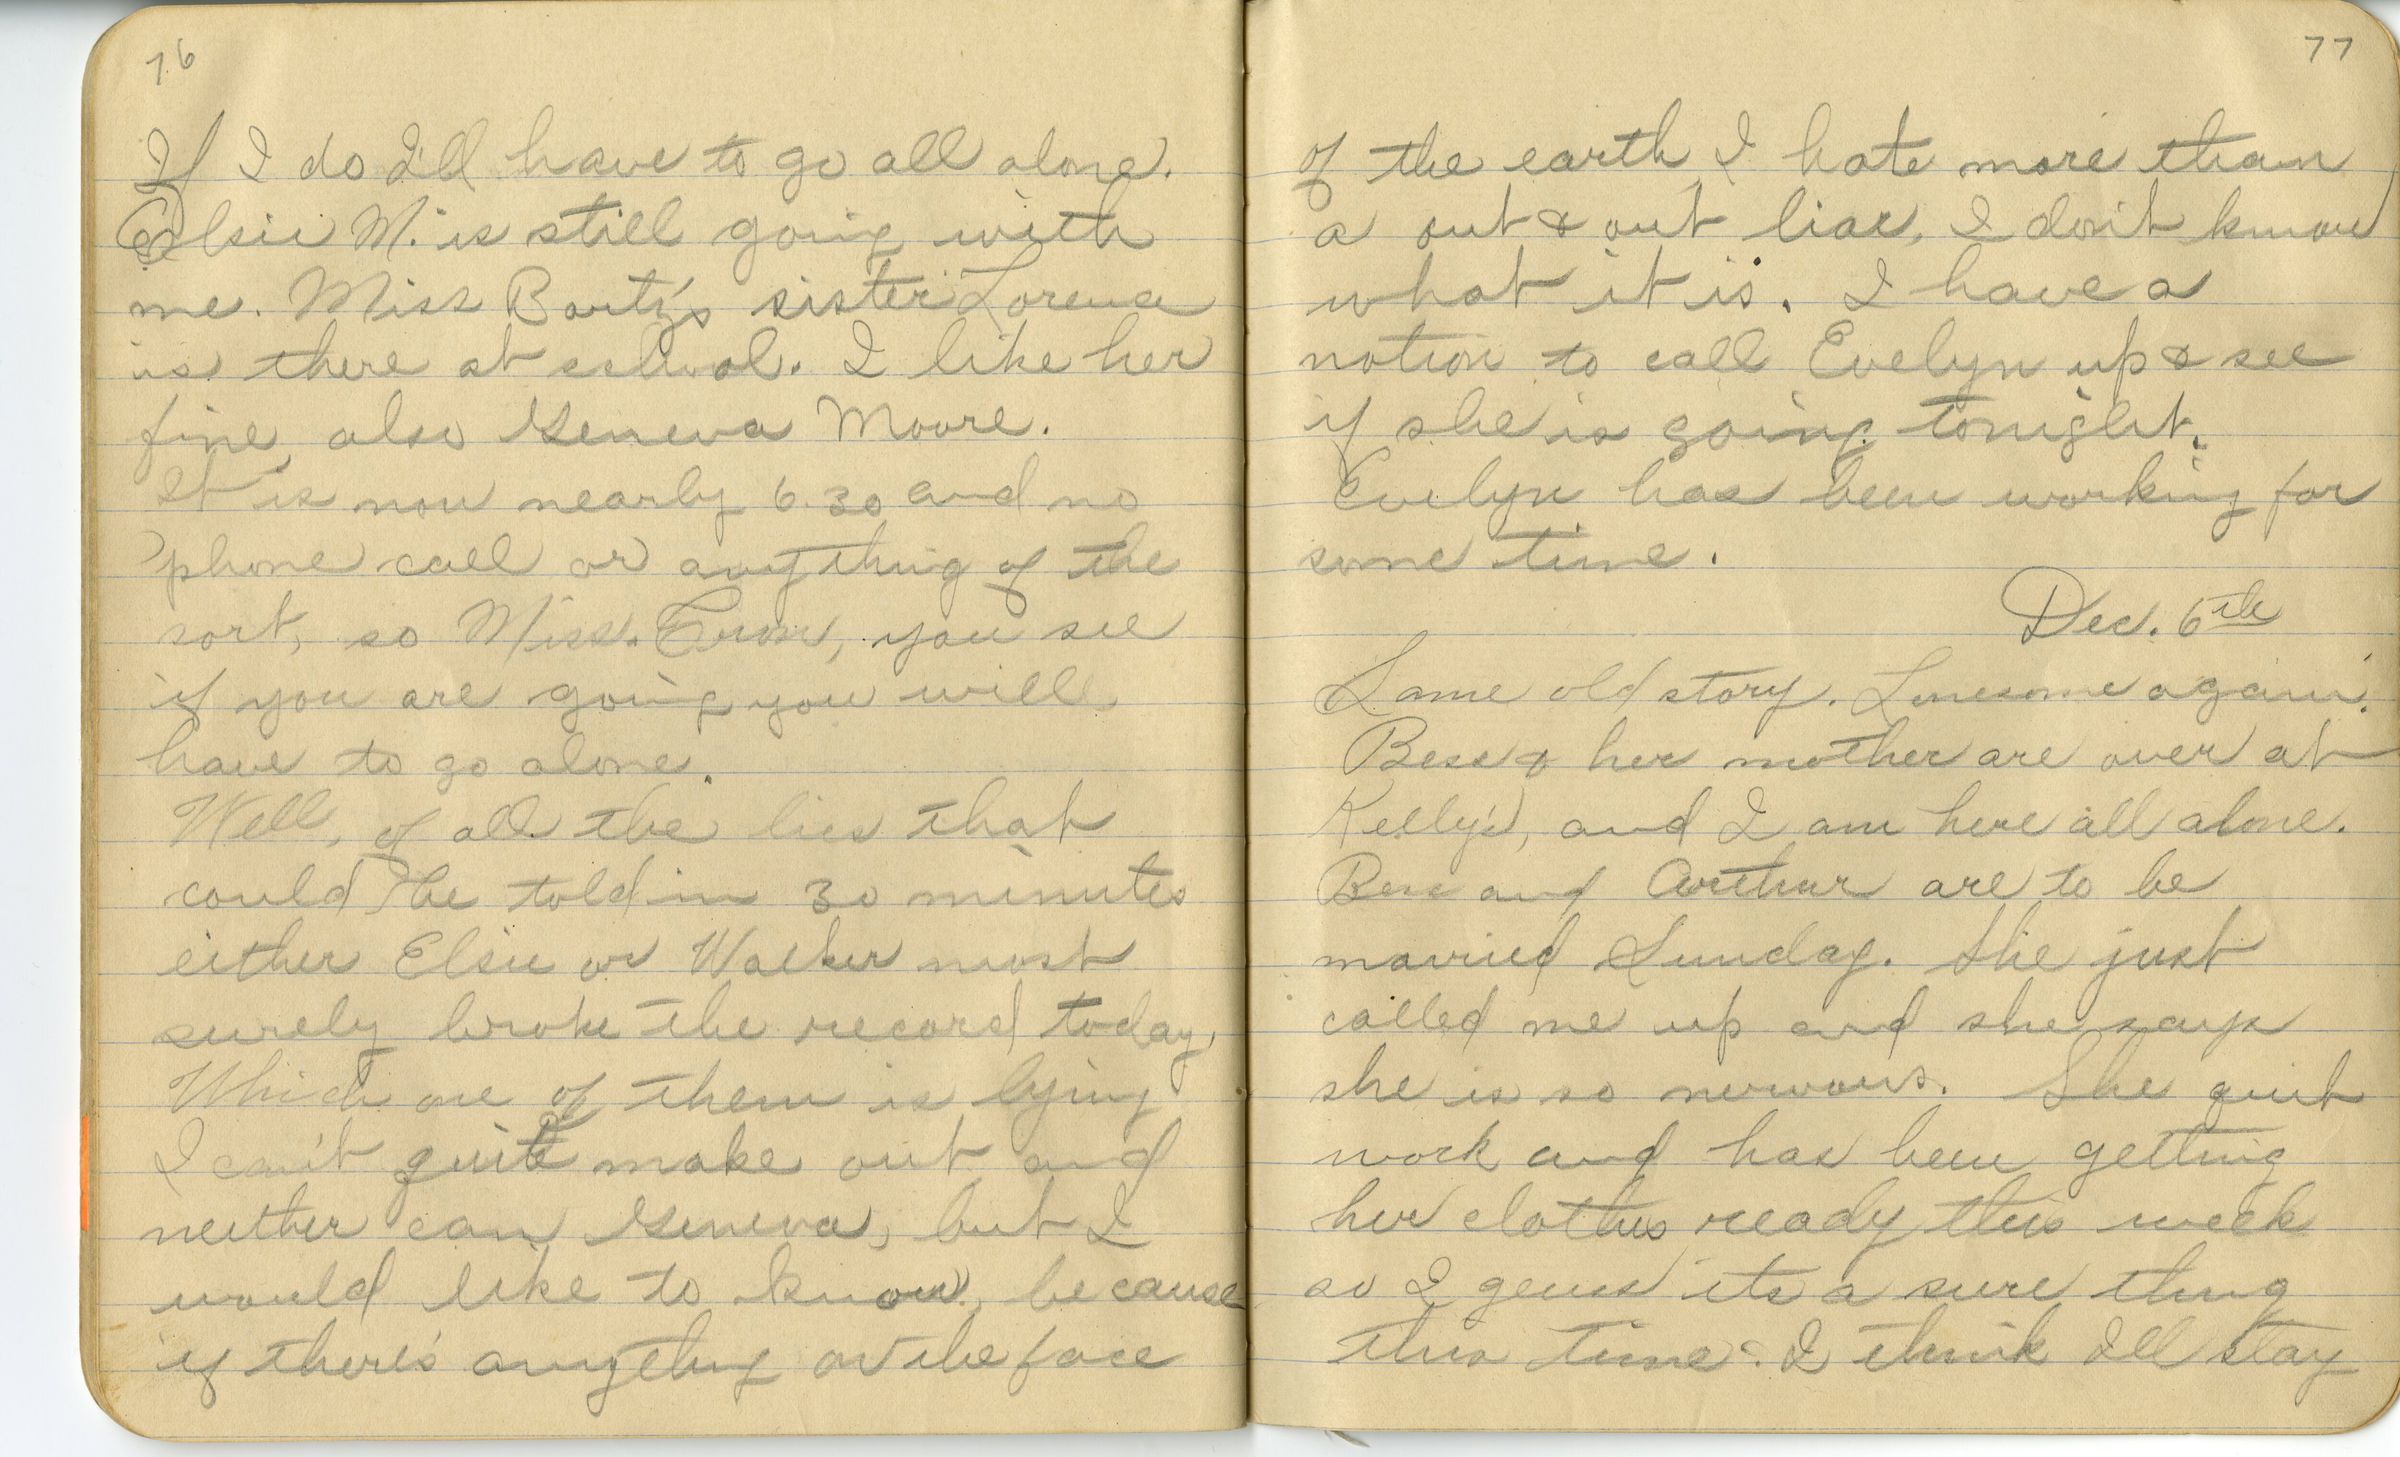 76
If I do I'll have to go all alone.
Elsie M. is still going with
me. Miss Barty's sister Lorena
is there at school. I like her
fine, also Geneva Moore.
It is now nearly 6.30 and no
'phone call or anything of the
sort, so Miss. , you see
if you are going you will
have to go alone.
Well, of all the lies that
could be told in 30 minutes
either Elsie or Walker most
surely broke the record today,
Which one of them is lying
I can't quite make out and
neither can Geneva, but I
would like to know, because
if there's anything on the face
77
of the earth I hate more than
a out & out liar, I don't know
what it is. I have a
notion to call Evelyn up & see
if she is going tonight.
Evelyn has been working for
some time.
Dec. 6th
Same old story. Lonesome again.
Bess & her mother are over at
Kelly's, and I am here all alone.
Bess and Arthur are to be
married Sunday. She just
called me up and she says
she is so nervous. She quit
work and has been getting
her clothes ready this week
so I guess its a sure thing
this time. I think I'll stay